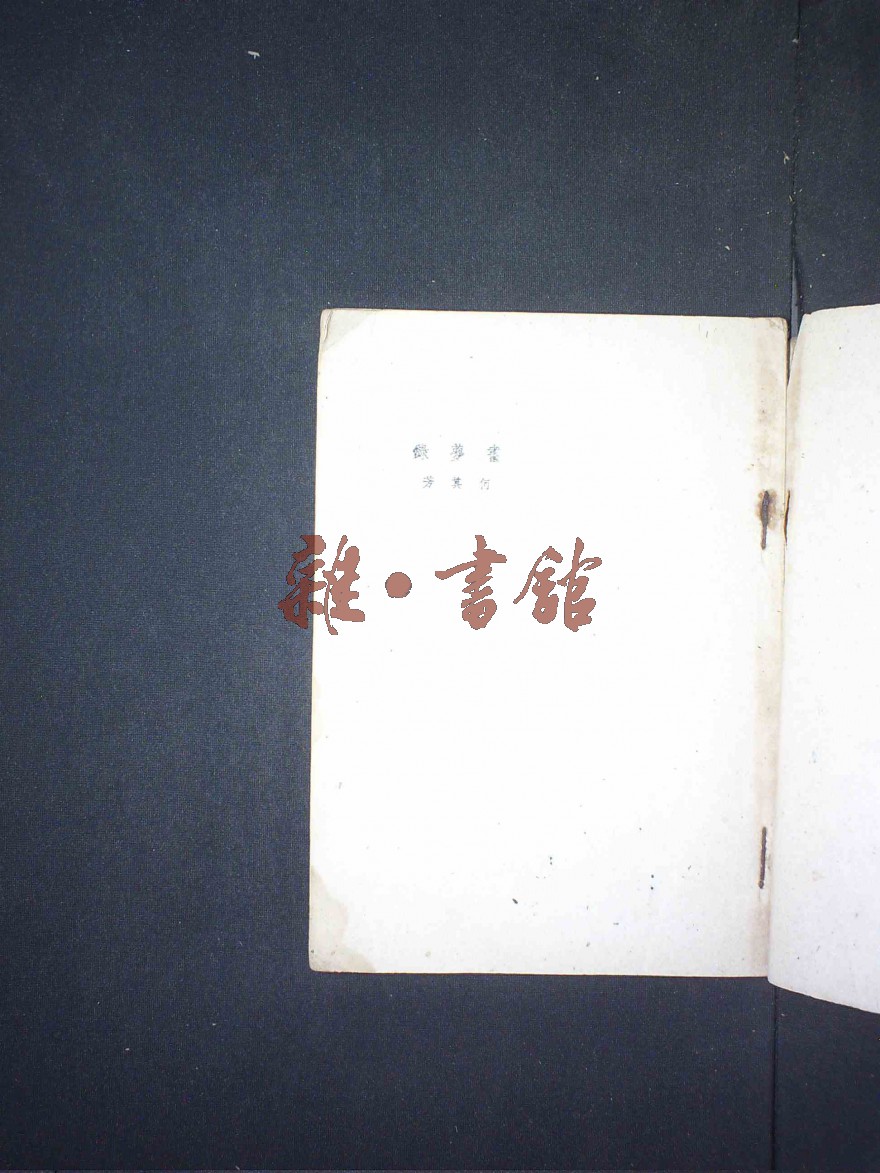 畫夢錄
何其芳
雜·書館